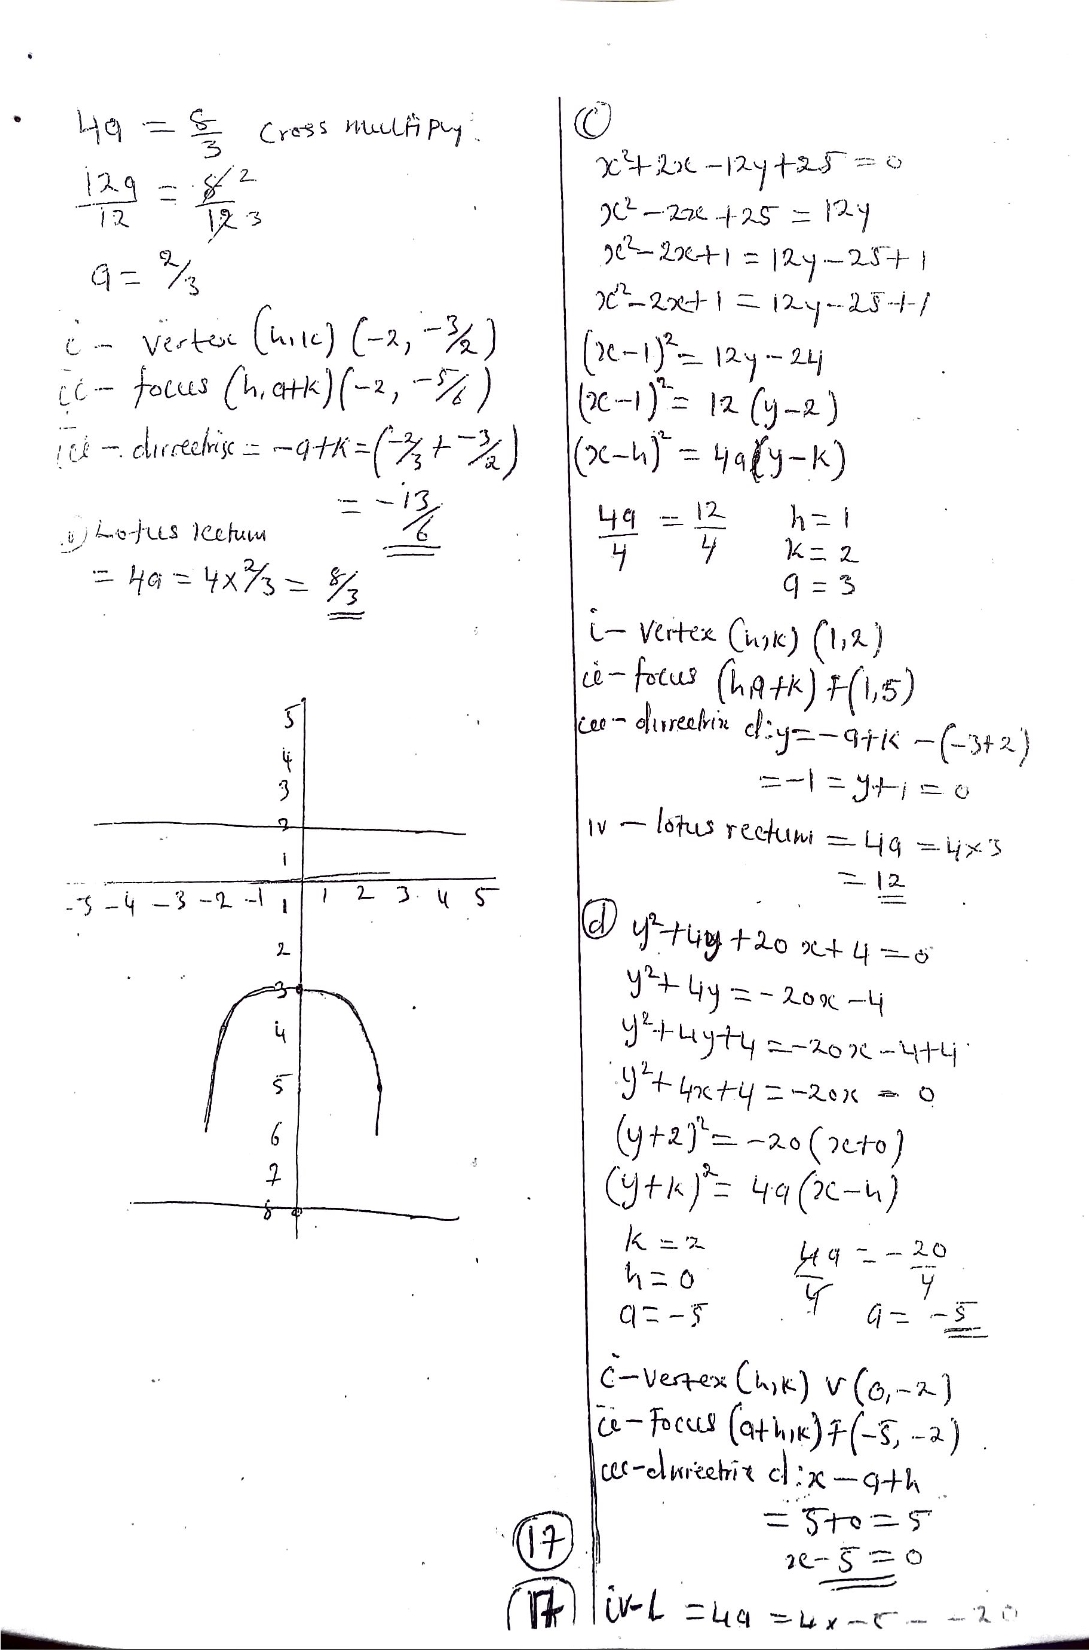 4a = 8/3 Cross multiply:
12a/12 = 8 2/12 3
a = 2/3
i - vertex (h,k) (-2, -3/2)
ii - focus (h, a+k) (-2, -5/6)
iii - dirrectrix = -a+k = (-2/3 + -3/2)
= -13/6
Lotus rectum
= 4a = 4x2/3 = 8/3
5
4
3
2
1
-5 -4 -3 -2 -1 1 2 3 4 5
1
2
3
4
5
6
7
8
(c)
x²+2x-12y+25 = 0
x²-2x+25 = 12y
x²-2x+1 = 12y-25+1
x²-2x+1 = 12y-25+1
(x-1)² = 12y-24
(x-1)² = 12(y-2)
(x-h)² = 4a(y-k)
4a/4 = 12/4 h=1
k=2
a=3
i- Vertex (h,k) (1,2)
ii- focus (h,a+k) F(1,5)
iii- dirrectrix d:y=-a+k -(-3+2)
=-1 = y+1 = 0
iv - lotus rectum = 4a = 4x3
= 12
(d) y²+4y+20x+4=0
y²+4y = -20x-4
y²+4y+4 = -20x-4+4
y²+4x+4 = -20x = 0
(y+2)² = -20(x+0)
(y+k)² = 4a(x-h)
k=2
h=0
a=-5
4a/4 = -20/4
a = -5
i-vertex (h,k) V(0,-2)
ii- Focus (a+h,k) F(-5,-2)
iii-dirrectrix d:x-a+h
= 5+0 = 5
x-5=0
iv-L = 4a = 4x-5 - -20
17
17